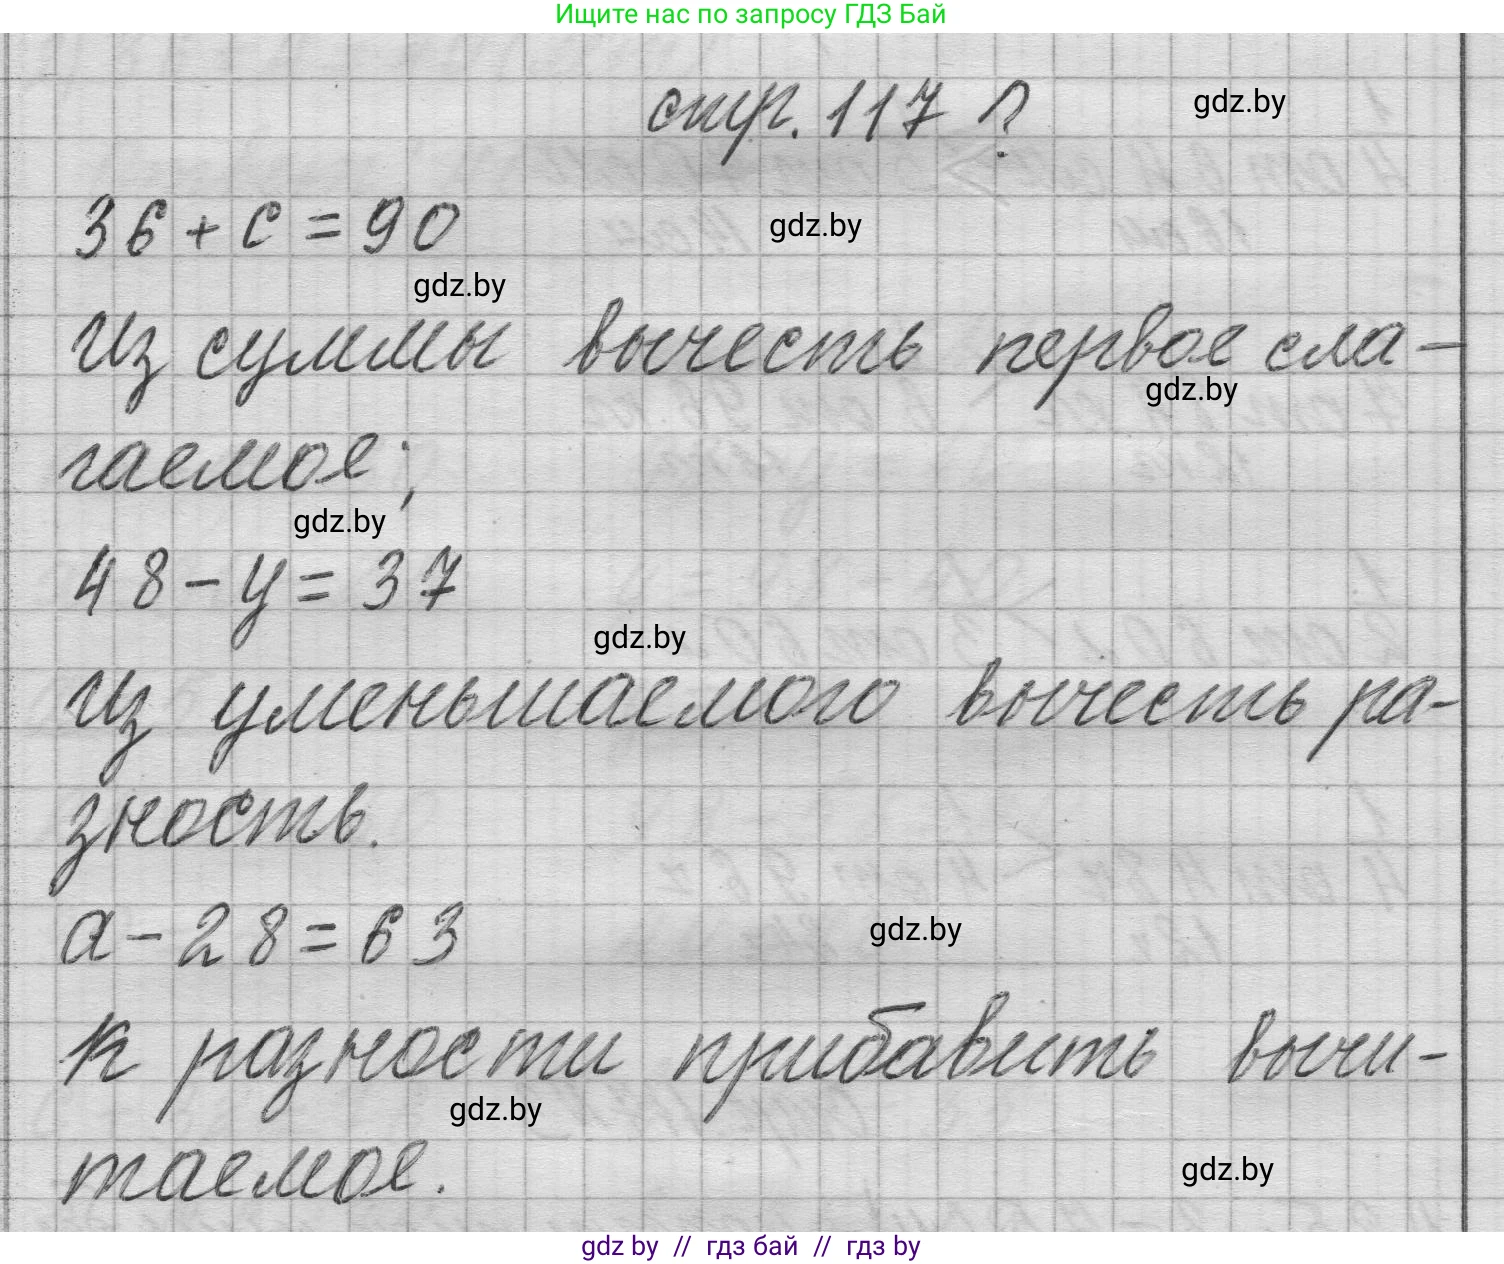 Ищите нас по запросу ГДЗ Бай
стр. 117 ?
gdz.by
36 + c = 90
gdz.by
gdz.by
Из суммы вычесть первое сла-
gdz.by
гаемое;
gdz.by
48 - y = 37
gdz.by
Из уменьшаемого вычесть ра-
зность.
a - 28 = 63
gdz.by
К разности прибавить вычи-
gdz.by
таемое.
gdz.by
gdz by // гдз бай // гдз by